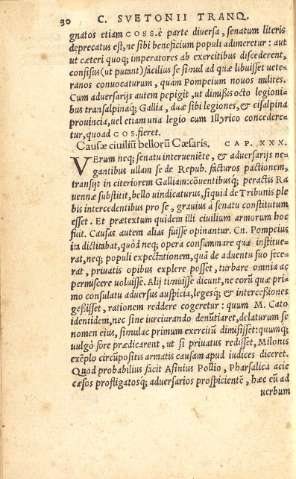 30 C. SVETONII TRANQ.
gnatos etiam COSS. è parte diuersa, senatum literis
deprecatus est, ne sibi beneficium populi adimeretur: aut
ut cæteri quoq; imperatores ab exercitibus discederent,
confisus (ut putant) facilius se simul ad quæ libuisset uete-
ranos conuocaturum, quàm Pompeium nouos milites.
Cum aduersarijs autem pepigit, ut dimissis octo legionib
bus transalpinaq; Gallia, duæ sibi legiones, & cisalpina
prouincia, uel etiam una legio cum Illyrico concedere-
tur, quoad COS. fieret.
Causæ ciuiliū bellorū Cæsaris. CAP. XXX.
VErum neq; senatu interueniēte, & aduersarijs ne-
gantibus ullam se de Repub. facturos pactionem,
transijt in citeriorem Galliam: conuentibusq; peractis Ra
uennæ substitit, bello uindicaturus, si quid de Tribunis ple
bis intercedentibus pro se, grauius à senatu constitutum
esset. Et prætextum quidem illi ciuilium armorum hoc
fuit. Causas autem alias fuisse opinantur. Cn. Pompeius
ita dictitabat, quòd neq; opera consummare quæ institue-
rat, neq; populi expectationem, quā de aduentu suo fece-
rat, priuatis opibus explere posset, turbare omnia ac
permiscere uoluisse. Alij timuisse dicunt, ne eorū quæ pri-
mo consulatu aduersus auspicia, legesq; & intercessiones
gessisset, rationem reddere cogeretur: quum M. Cato
identidem, nec sine iureiurando denūtiaret, delaturum se
nomen eius, simulac primum exercitū dimisisset: quumq;
uulgò fore prædicarent, ut si priuatus redisset, Milonis
exēplo circūpositis armatis causam apud iudices diceret.
Quod probabilius facit Asinius Pollio, Pharsalica acie
cæsos profligatosq; aduersarios prospicientē, hæc eū ad
uerbum